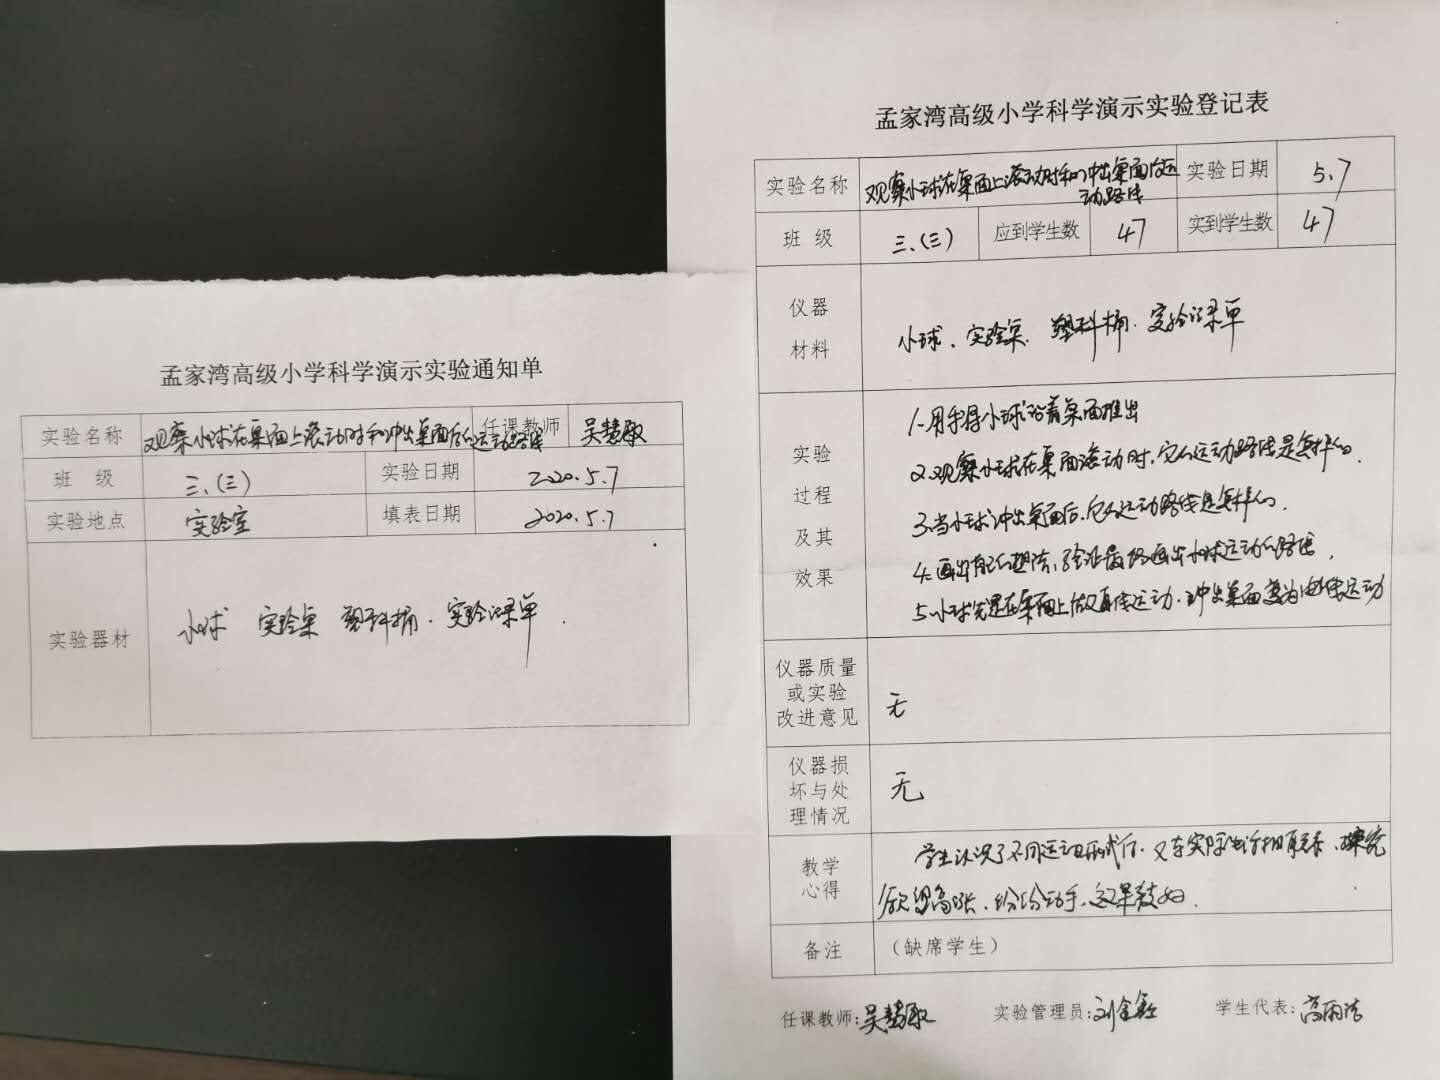 孟家湾高级小学科学演示实验通知单
实验名称 观察小球在桌面上滚动时和冲出桌面后的运动路线 任课教师 吴慧敏
班 级 三、(三) 实验日期 2020.5.7
实验地点 实验室 填表日期 2020.5.7
实验器材 小球 实验桌 塑料桶. 实验记录单.
孟家湾高级小学科学演示实验登记表
实验名称 观察小球在桌面上滚动时和冲出桌面后运
动路线 实验日期 5.7
班 级 三、(三) 应到学生数 47 实到学生数 47
仪器
材料
小球、实验桌. 塑料桶. 实验记录单
实验
过程
及其
效果
1.用手将小球沿着桌面推出
2.观察小球在桌面滚动时,它的运动路线是怎样的.
3.当小球冲出桌面后,它的运动路线是怎样的.
4.画出自己的想法,验证最后画出小球运动的路线.
5.小球先是在桌面上做直线运动.冲出桌面变为曲线运动
仪器质量
或实验
改进意见
无
仪器损
坏与处
理情况
无
教学
心得
学生认识了不同运动形式后,又与实际生活相联系,探究
欲望高涨、纷纷动手,效果较好.
备注 (缺席学生)
任课教师:吴慧敏 实验管理员:刘金 学生代表:高雨洁